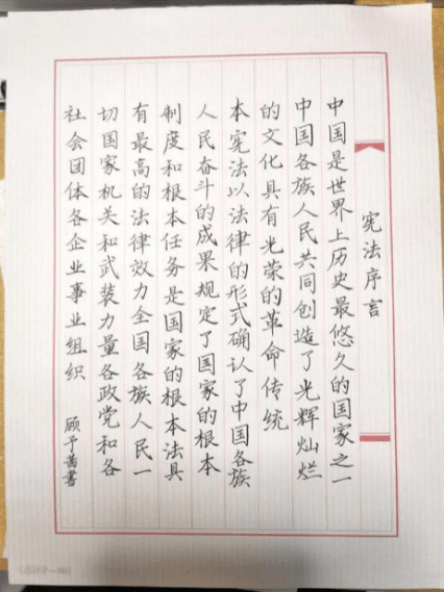 宪法序言
中国是世界上历史最悠久的国家之一
中国各族人民共同创造了光辉灿烂
的文化具有光荣的革命传统
本宪法以法律的形式确认了中国各族
人民奋斗的成果规定了国家的根本
制度和根本任务是国家的根本法具
有最高的法律效力全国各族人民一
切国家机关和武装力量各政党和各
社会团体各企业事业组织
顾予茜书